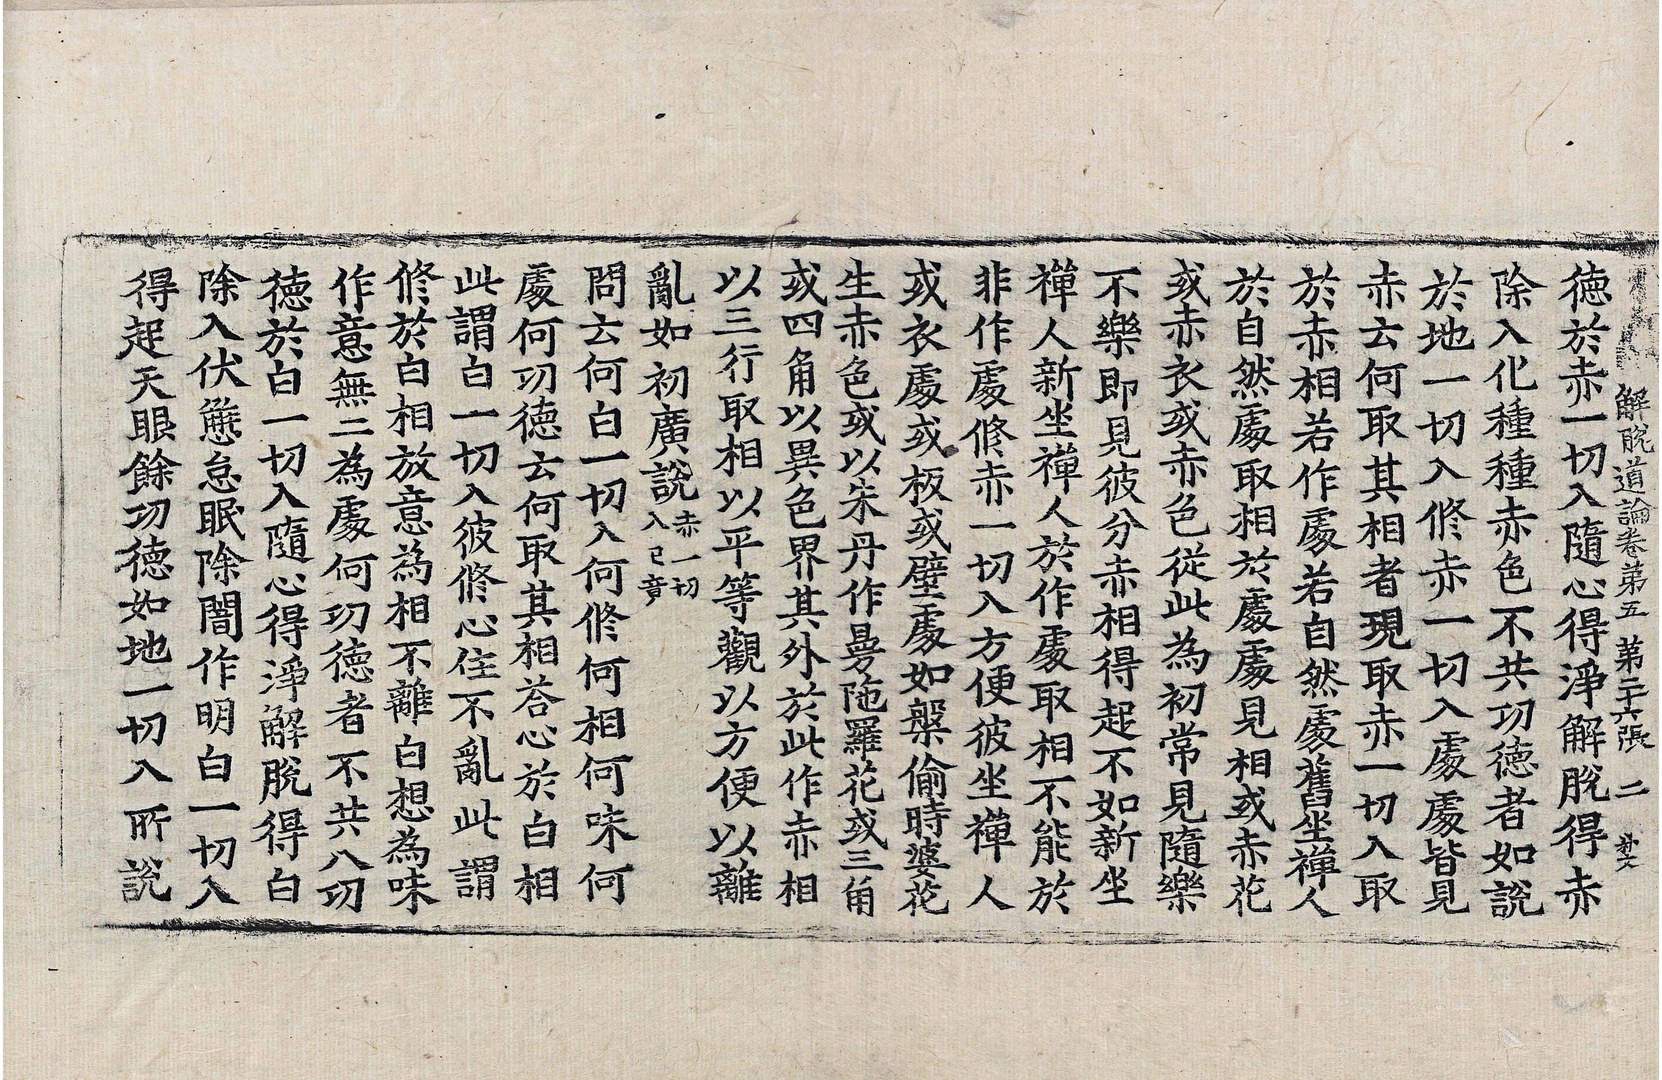 解脫道論卷第五 第二十六張 二
德於赤一切入隨心得淨解脫得赤
除入化種種赤色不共功德者如說
於地一切入修赤一切入處處皆見
赤云何取其相者現取赤一切入取
於赤相若作處若自然處舊坐禪人
於自然處取相於處處見相或赤花
或赤衣或赤色從此為初常見隨樂
不樂即見彼分赤相得起不如新坐
禪人新坐禪人於作處取相不能於
非作處修赤一切入方便彼坐禪人
或衣處或板或壁處如槃偷時婆花
生赤色或以朱丹作曼陁羅花或三角
或四角以異色界其外於此作赤相
以三行取相以平等觀以方便以離
亂如初廣說赤一切入已竟
問云何白一切入何修何相何味何
處何功德云何取其相荅心於白相
此謂白一切入彼修心住不亂此謂
修於白相放意為相不離白想為味
作意無二為處何功德者不共八功
德於白一切入隨心得淨解脫得白
除入伏懲怠眠除闇作明白一切入
得起天眼餘功德如地一切入所說